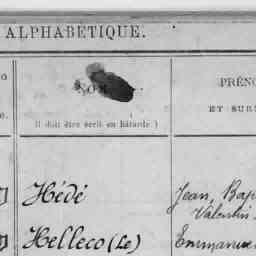 ALPHABÉTIQUE.
NOM.
PRÉNO
ET SUR
Il doit être écrit en bâtarde.)
Hédé
Jean, Bap
Valentin
Helleco (Le)
Emmanue